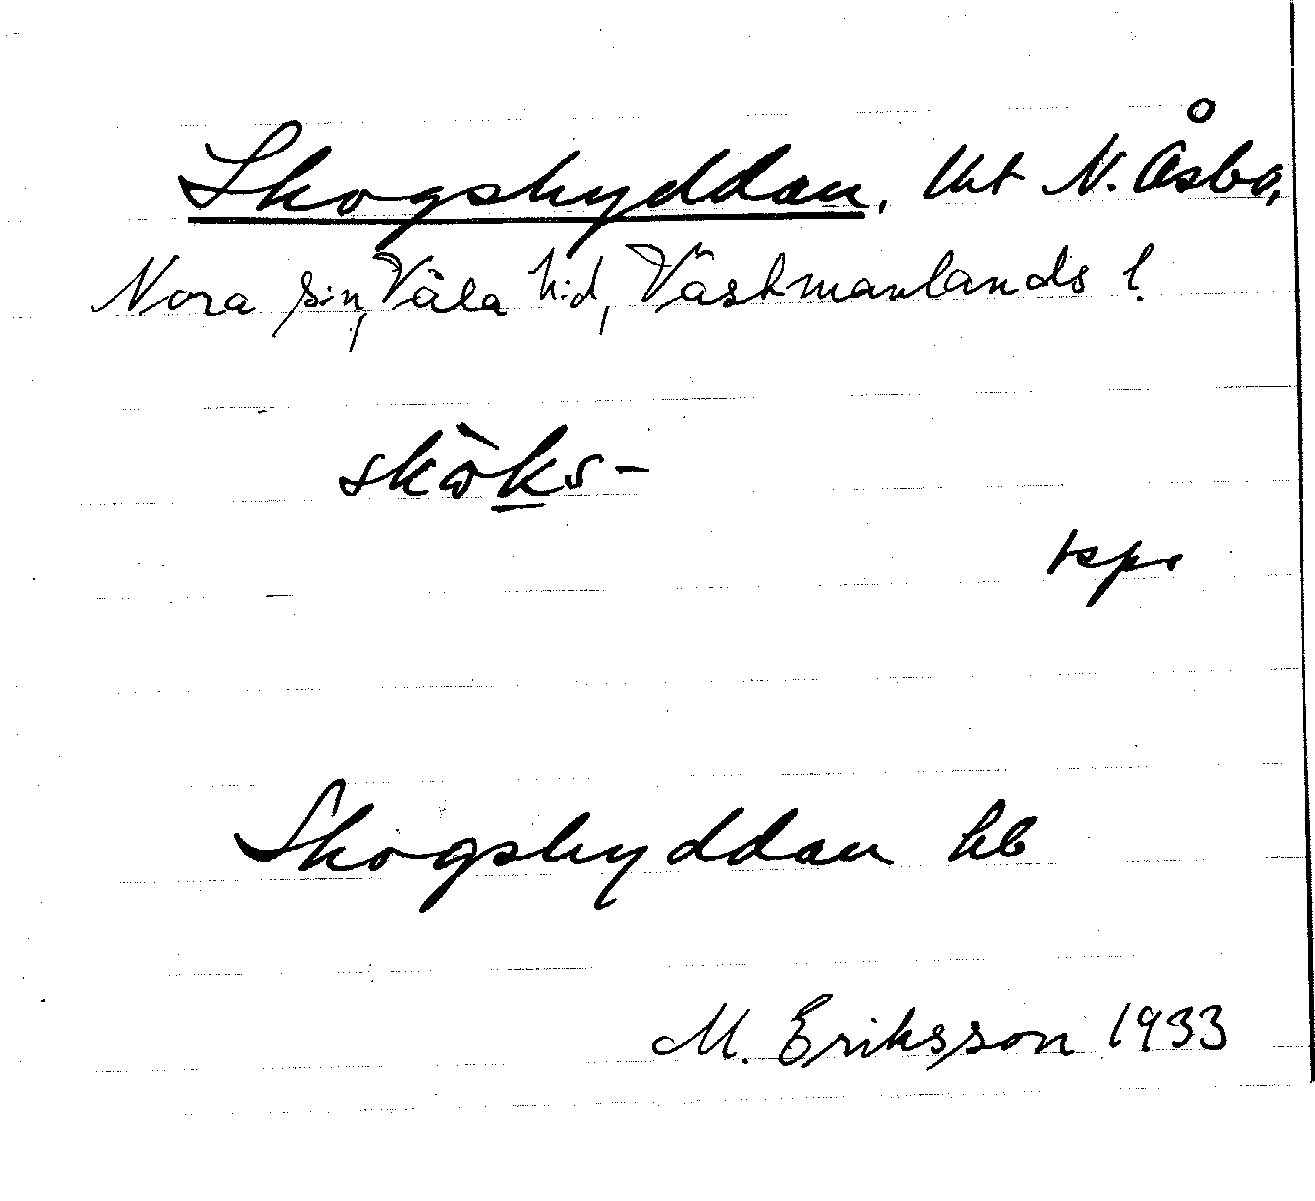 Skogshyddan, lht N. Åsbo,
Nora s:n, Våla h:d, Västmanlands l.
skòks-
tspr
Skogshyddan hb
M. Eriksson 1933